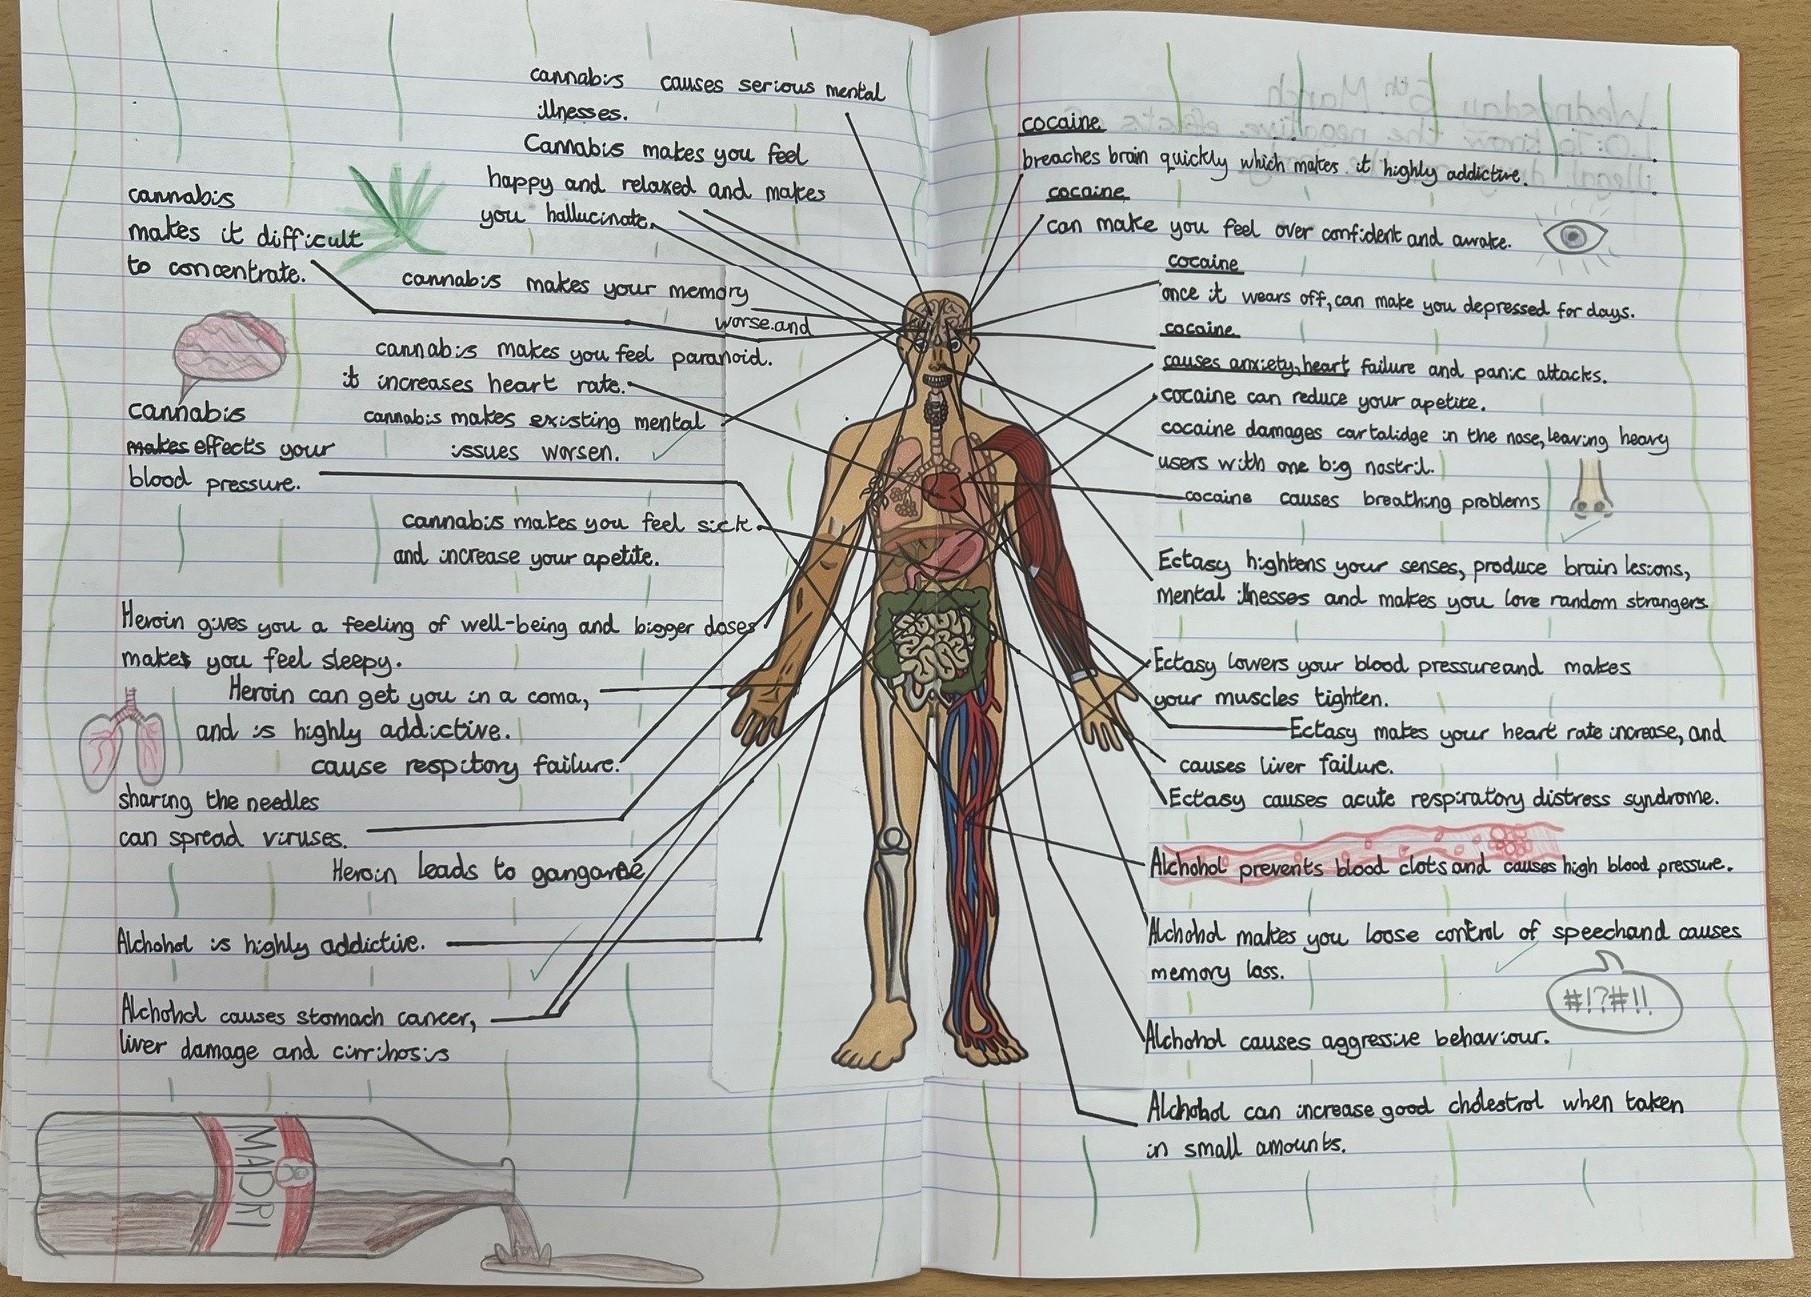 cannabis causes serious mental
illnesses.
Cannabis makes you feel
happy and relaxed and makes
you hallucinate.
cannabis
makes it difficult
to concentrate.
cannabis makes your memory
worse and
cannabis makes you feel paranoid.
it increases heart rate.
cannabis makes existing mental
issues worsen.
cannabis
makes effects your
blood pressure.
cannabis makes you feel sick
and increase your apetite.
Heroin gives you a feeling of well-being and bigger doses
makes you feel sleepy.
Heroin can get you in a coma,
and is highly addictive.
cause respitory failure.
sharing the needles
can spread viruses.
Heroin leads to gangarne
Alchohol is highly addictive.
Alchohol causes stomach cancer,
liver damage and cirrihosis
MADRI
cocaine
breaches brain quickly which makes it highly addictive.
cocaine
can make you feel over confident and awake.
cocaine
once it wears off, can make you depressed for days.
cocaine
causes anxiety, heart failure and panic attacks.
cocaine can reduce your apetite.
cocaine damages cartalidge in the nose, leaving heavy
users with one big nostril.
cocaine causes breathing problems
Ectasy hightens your senses, produce brain lesions,
mental illnesses and makes you love random strangers.
Ectasy lowers your blood pressure and makes
your muscles tighten.
Ectasy makes your heart rate increase, and
causes liver failure.
Ectasy causes acute respiratory distress syndrome.
Alchohol prevents blood clots and causes high blood pressure.
Alchohol makes you loose control of speech and causes
memory loss.
#!?#!!
Alchohol causes aggressive behaviour.
Alchohol can increase good cholestrol when taken
in small amounts.
Wednesday 6th March
L.O: To know the negative effects
illegal